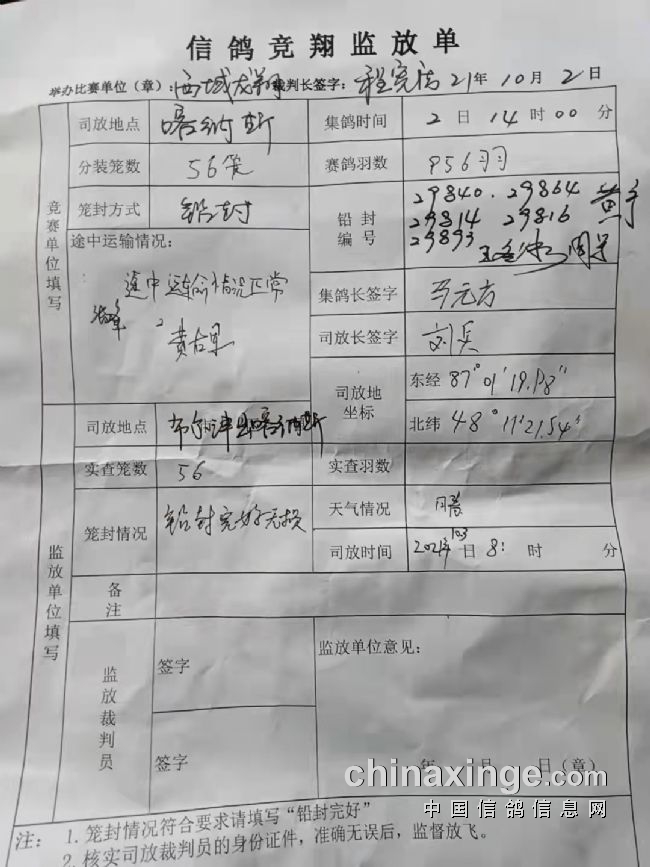 信鸽竞翔监放单
举办比赛单位(章):西域龙翔 裁判长签字: 21年10月2日
竞赛单位填写
司放地点 喀纳斯 集鸽时间 2日14时00分
分装笼数 56笼 赛鸽羽数 956羽
笼封方式 铅封 铅封编号 29840. 29864
29814 29816
29893
途中运输情况:
途中运输情况正常
集鸽长签字 马元方
司放长签字 刘兵
司放地坐标 东经 87°01'19.98"
北纬 48°11'21.54"
监放单位填写
司放地点 布尔津县喀纳斯
实查笼数 56 实查羽数
笼封情况 铅封完好无损 天气情况
司放时间 日8:时 分
备注
监放裁判员 签字 监放单位意见:
签字 年 月 日(章)
chinaxinge.com
中国信鸽信息网
注: 1. 笼封情况符合要求请填写“铅封完好”
2. 核实司放裁判员的身份证件,准确无误后,监督放飞。